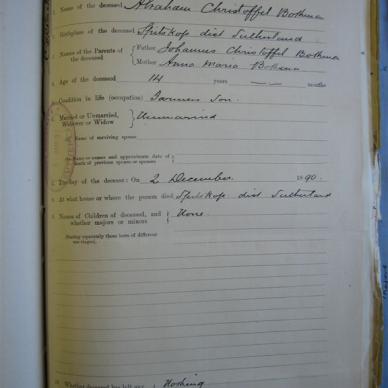 Name of the deceased Abraham Christoffel Bothma
2. Birthplace of the deceased Spitskop dist Sutherland
3. Names of the Parents of the deceased { Father Johannes Christoffel Bothma
Mother Anna Maria Bothma
4. Age of the deceased 14 years — months
5. Condition in life (occupation) Farmers Son.
6. Married or Unmarried, Widower or Widow } Unmarried
Name of surviving spouse
Name or names and approximate date of death of previous spouse or spouses }
7. The day of the decease: On 2 December 1890.
8. At what house or where the person died Spitskop dist Sutherland
9. Names of Children of deceased, and whether majors or minors { None
Stating separately those born of different marriages.
Whether deceased has left any Nothing